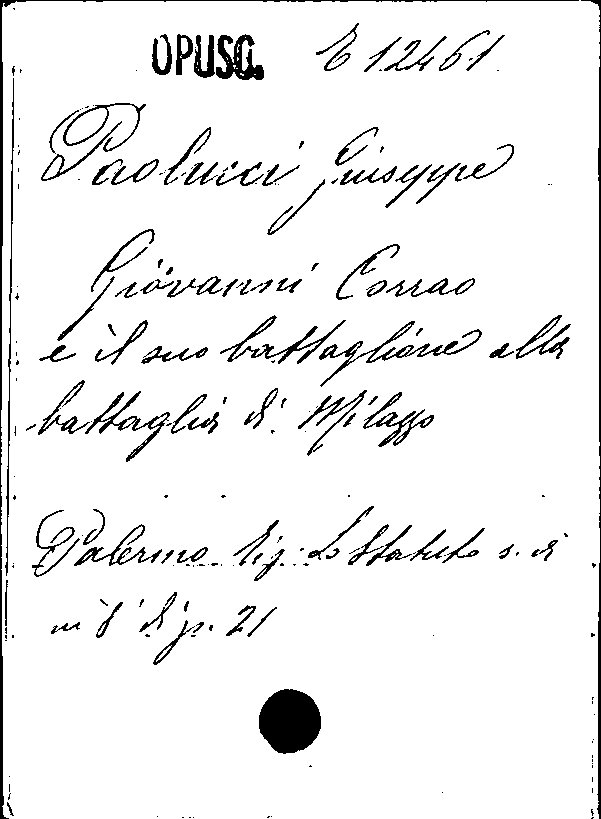 OPUSC. E 12461
Paolucci Giuseppe
Giovanni Corrao
e il suo battaglione alla
battaglia di Milazzo
Palermo Tip. Lo Statuto s. d.
in 8° di p. 21